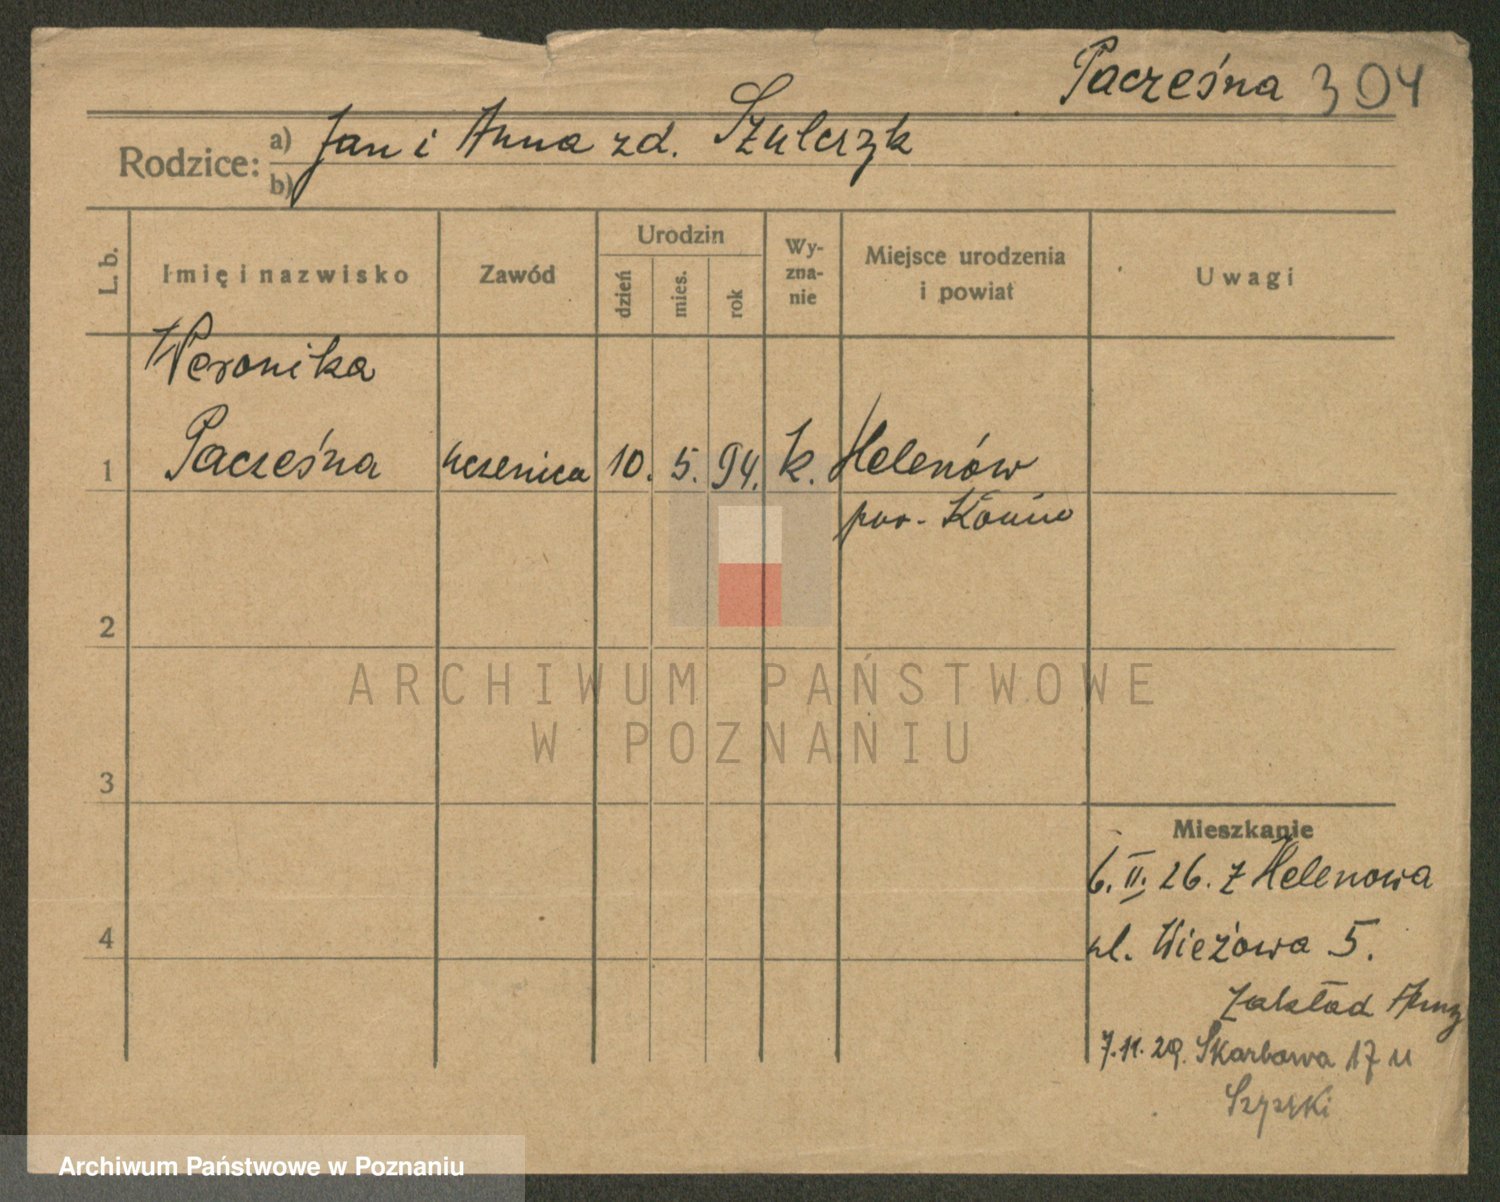 Pacześna 304
Rodzice: a) Jan i Anna zd. Szulczyk
b)
L. b.
Imię i nazwisko
Zawód
Urodzin
dzień
mies.
rok
Wy-
zna-
nie
Miejsce urodzenia
i powiat
Uwagi
Weronika
1 Pacześna uczenica 10. 5. 94. k. Helenów
pow. Konin
2
ARCHIWUM PAŃSTWOWE
W POZNANIU
3
Mieszkanie
6. II. 26. z Helenowa
4
ul. Wieżowa 5.
Zakład
7.11.29. Skarbowa 17 u
Archiwum Państwowe w Poznaniu